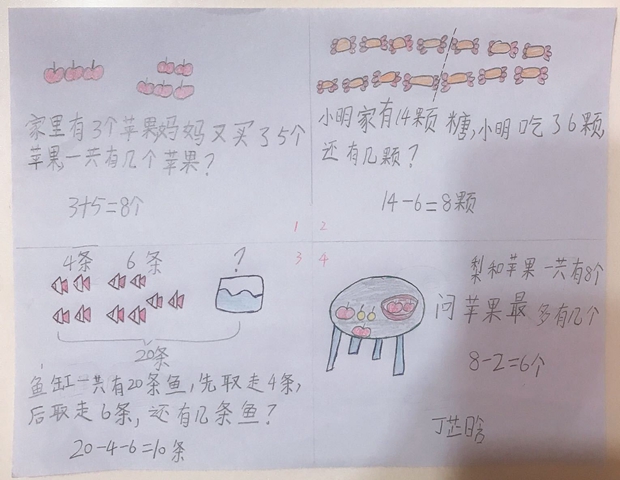 家里有3个苹果妈妈又买了5个
苹果,一共有几个苹果?
3+5=8个
小明家有14颗糖,小明吃了6颗,
还有几颗?
14-6=8颗
1 2
3 4
4条 6条 ?
20条
鱼缸一共有20条鱼,先取走4条,
后取走6条,还有几条鱼?
20-4-6=10条
梨和苹果一共有8个
问苹果最多有几个
8-2=6个
丁芷晗